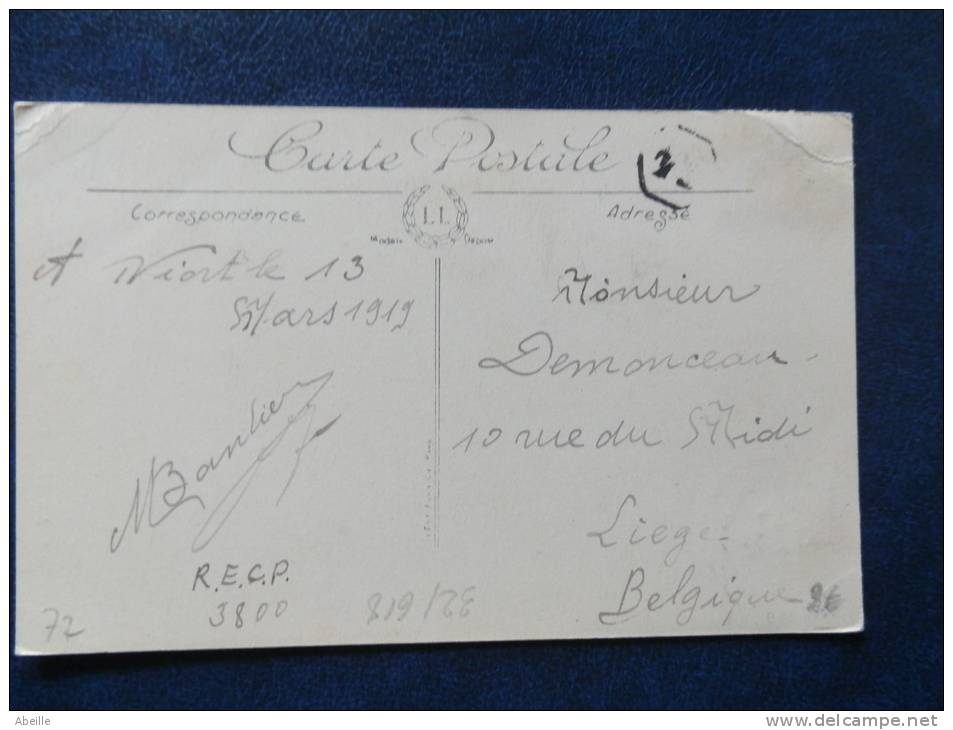 Carte Postale
2
Correspondance
LL
Adresse
Modèle Déposé
Niort le 13
Mars 1919
Monsieur
Demonceau
10 rue du Midi
Liege
Belgique
R.E.C.P.
3800
72
819/2E
Abeille
www.delcampe.net